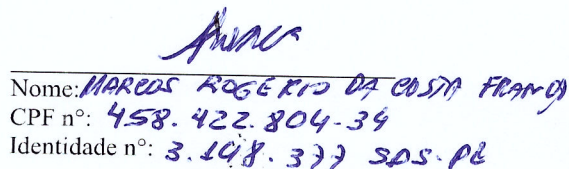 Nome: MARCOS ROGÉRIO DA COSTA FRANÇA
CPF nº: 458.422.804-34
Identidade nº: 3.148.377 SDS-PE